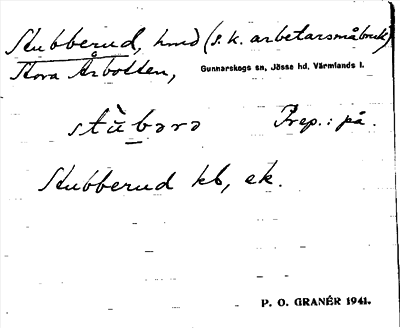 Stubberud, hmd (s.k. arbetarsmåbruk)
Stora Årbotten, Gunnarskogs sn, Jösse hd, Värmlands l.
stù̱bərə Prep.: på.
Stubberud kb, ek.
P. O. GRANÉR 1941.